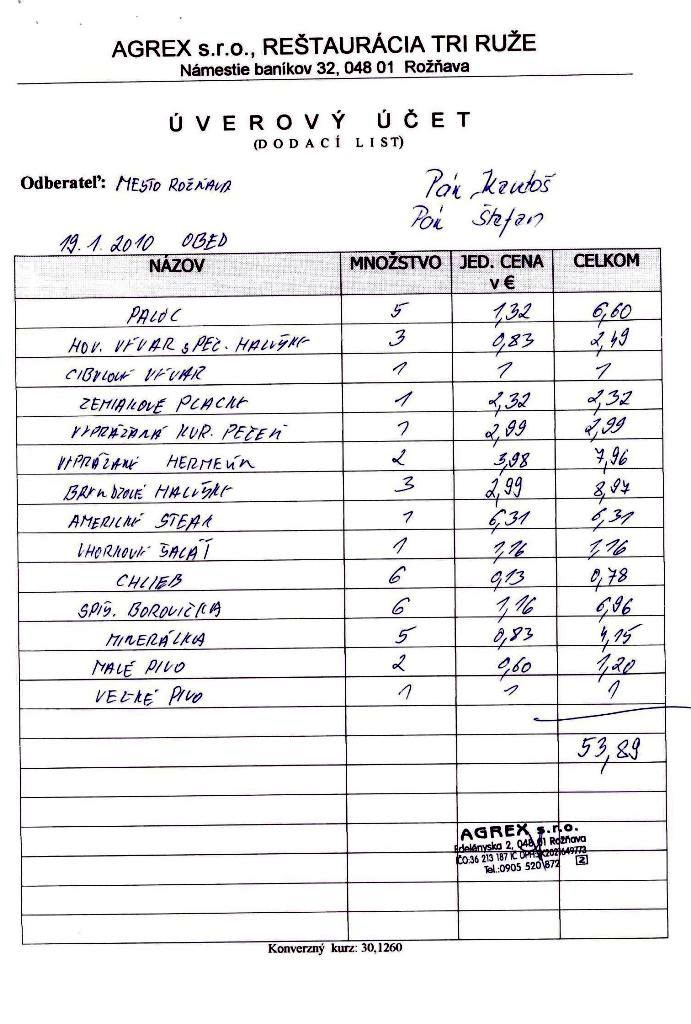 AGREX s.r.o., REŠTAURÁCIA TRI RUŽE
Námestie baníkov 32, 048 01 Rožňava
ÚVEROVÝ ÚČET
(DODACÍ LIST)
Odberateľ: MESTO ROŽŇAVA
Pán
Pán Štefan
19.1.2010 OBED
NÁZOV MNOŽSTVO JED. CENA v € CELKOM
PALOC 5 1,32 6,60
HOV. VÝVAR s PEČ. HALUŠKY 3 0,83 2,49
CIBUĽOVÝ VÝVAR 1 1 1
ZEMIAKOVÉ PLACKY 1 2,32 2,32
VYPRÁŽANÁ KUR. PEČEŇ 1 2,99 2,99
VYPRÁŽANÝ HERMELÍN 2 3,98 7,96
BRYNDZOVÉ HALUŠKY 3 2,99 8,97
AMERICKÝ STEAK 1 6,31 6,31
UHORKOVÝ ŠALÁT 1 1,16 1,16
CHLIEB 6 0,13 0,78
SPIŠ. BOROVIČKA 6 1,16 6,96
MINERÁLKA 5 0,83 4,15
MALÉ PIVO 2 0,60 1,20
VEĽKÉ PIVO 1 1 1
53,89
AGREX s.r.o.
Edelényska 2, 048 01 Rožňava
IČO:36 213 187 IČ DPH:
Tel.:0905 520 872 2
Konverzný kurz: 30,1260